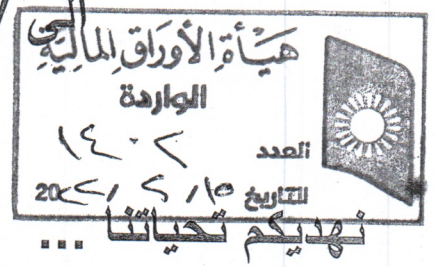 هيأة الأوراق المالية
الواردة
العدد ١٤٠٢
التاريخ ١٥ / ٢ / 20٢٢
نهديكم تحياتنا ...